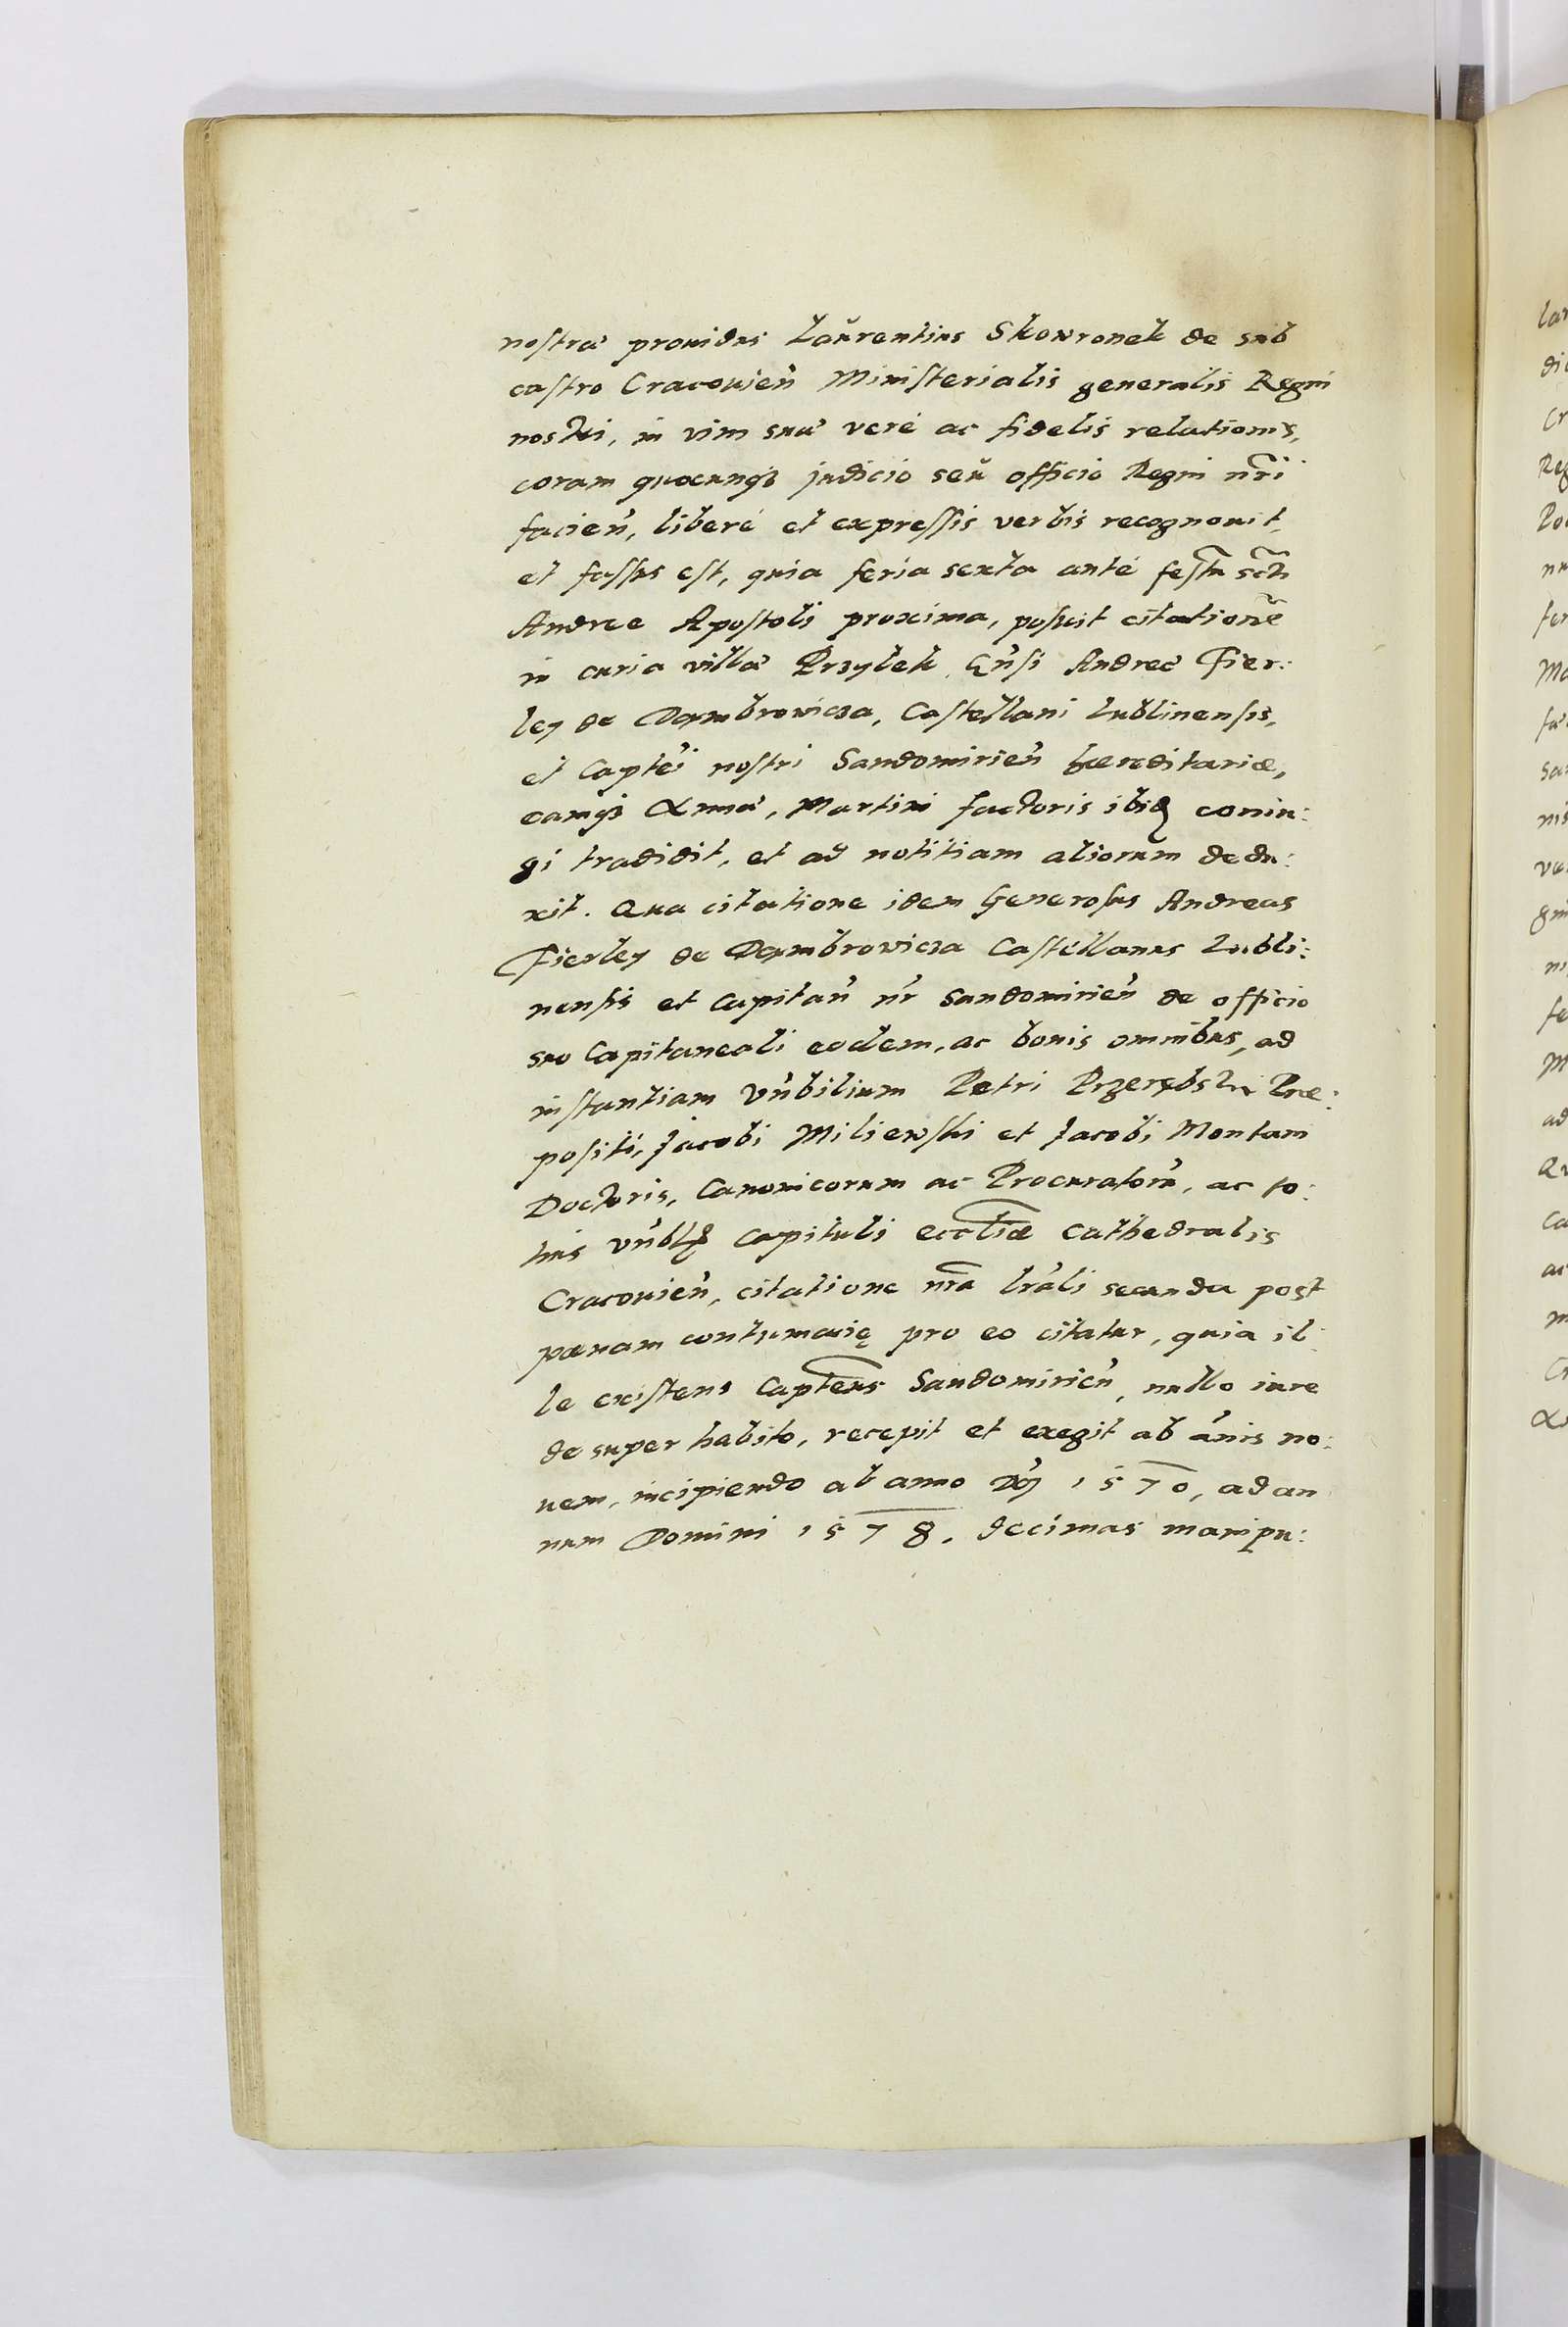 nostræ prouidus Laŭrentius Skowronek de sub
castro Cracouien̄ Ministerialis generalis Regni
nostri, in vim suæ veré ac fidelis relationis,
coram quocunq₃ judicio seŭ officio Regni nr̄i
facien̄, liberé et expressis verbis recognouit,
et fassus est, quia feria sexta anté festū sct̄i
Andree Apostoli proxima, posuit citationē
in curia villæ Przylek Gn̄si Andreæ Fier:
ley de Dambrowicza, Castellani Lublinensis,
et Captēi nostri Sandomirien̄ hæreditariæ,
eamq₃ Annæ, Martini factoris ibiđ coniu:
gi tradidit, et ad notitiam aliorum dedu:
xit. Qua citatione idem Generosus Andreas
Fierley de Dambrowicza Castellanus Lubli:
nensis et Capitan̄ nr̄ Sandomirien̄ de officio
suo Capitaneali eodem, ac bonis omnibus, ad
instantiam Vn̄bilium Petri Przerębski Præ:
positi, Jacobi Miliewski et Jacobi Montani
Doctoris, Canonicorum ac Procuratorū, ac to:
tius Vn̄blꝭ Capituli eccl̄iæ Cathedralis
Cracouien̄, citatione nr̄a lr̄ali secunda post
pænam contumacię pro eo citatur, quia il:
le existens Captēus Sandomirien̄, nullo iure
de super habito, recepit et exegit ab ān̄is no:
uem, incipiendo ab anno Dn̄j 1570, ad an
num Domini 1578. decimas manipu:
lar
di
Cr
Reg
nu
fer
Ma
sa
nis
ve
ni
fe
M
ad
ca
ac
m